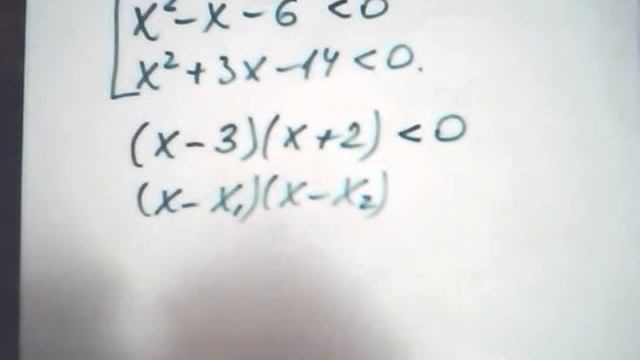 x² - x - 6 < 0
x² + 3x - 14 < 0.
(x - 3)(x + 2) < 0
(x - x₁)(x - x₂)